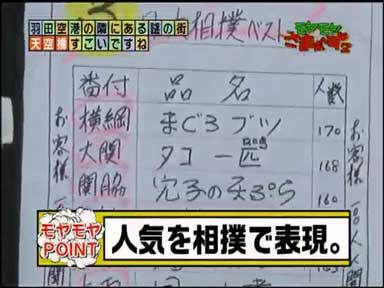 羽田空港の隣にある謎の街
天空橋すごいですね
モヤモヤ
さまぁ〜ず2
相撲ベスト
番付 品名 人数
横綱 まぐろブツ 170
大関 タコ一匹 168
関脇 穴子の天ぷら 160
お客様
お客様
モヤモヤ
POINT
人気を相撲で表現。